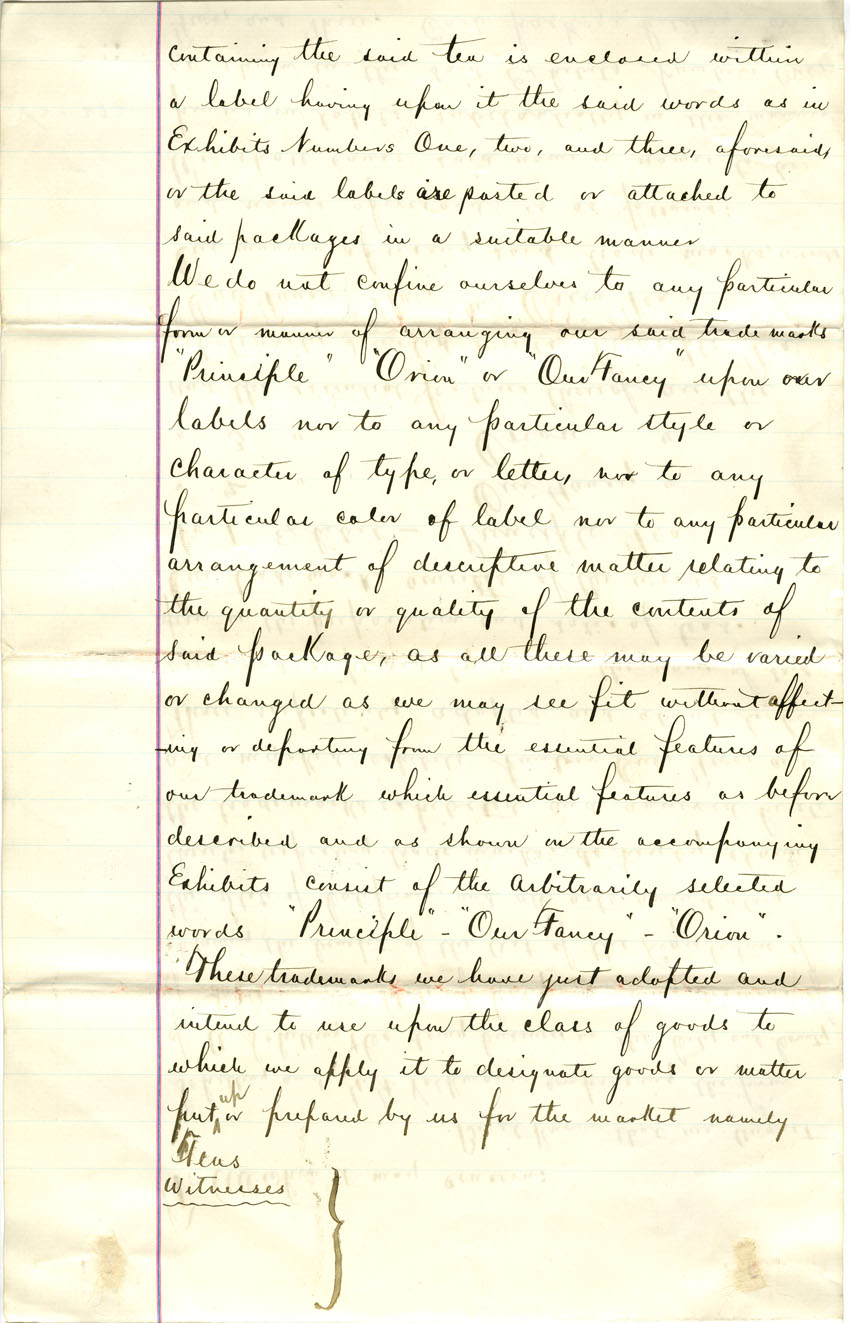 containing the said tea is enclosed within
a label having upon it the said words as in
Exhibits Numbers One, two, and three, aforesaid,
or the said labels are pasted or attached to
said packages in a suitable manner
We do not confine ourselves to any particular
form or manner of arranging our said trade marks
"Principle" "Orion" or "Our Fancy" upon our
labels nor to any particular style or
character of type, or letter, nor to any
particular color of label nor to any particular
arrangement of descriptive matter relating to
the quantity or quality of the contents of
said package, as all these may be varied
or changed as we may see fit without affect-
-ing or departing from the essential features of
our trademark which essential features as before
described and as shown on the accompanying
Exhibits consist of the arbitrarily selected
words "Principle" - "Our Fancy" - "Orion".
These trademarks we have just adopted and
intend to use upon the class of goods to
which we apply it to designate goods or matter
put up or prepared by us for the market namely
Teas
Witnesses }